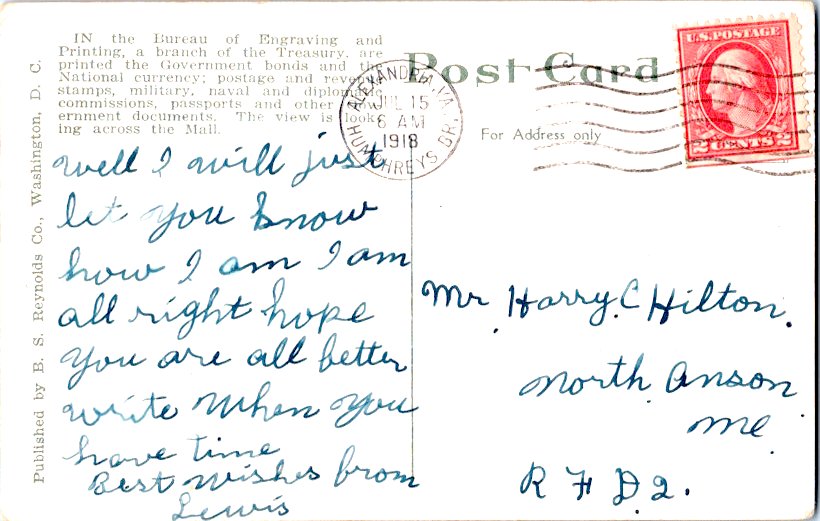 IN the Bureau of Engraving and
Printing, a branch of the Treasury, are
printed the Government bonds and the
National currency; postage and revenue
stamps, military, naval and diplomatic
commissions, passports and other Gov-
ernment documents. The view is look-
ing across the Mall.
Published by B. S. Reynolds Co., Washington, D. C.
Post Card
For Address only
ALEXANDRIA, VA.
JUL 15
6 AM
1918
HUMPHREYS BR.
U.S. POSTAGE
2 CENTS 2
well I will just
let you know
how I am I am
all right hope
you are all better
write when you
have time
Best wishes from
Lewis
Mr Harry C Hilton.
North Anson
Me
R F D 2.